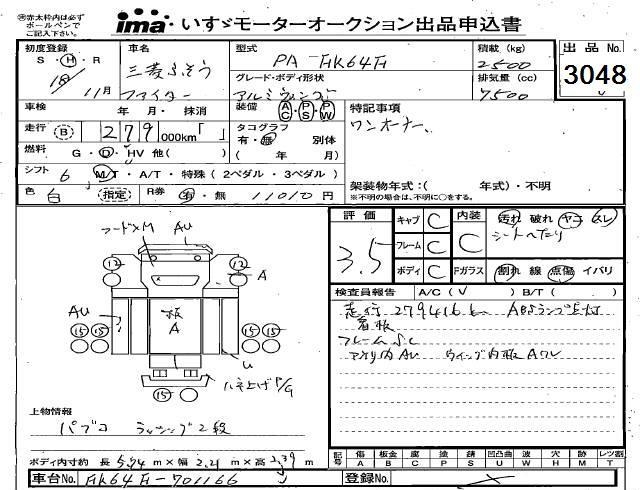 ※赤太枠内は必ず
ボールペンで
ご記入下さい。
ima いすゞモーターオークション出品申込書
初度登録
S・H・R
18
11月
車名
三菱ふそう
ファイター
型式
PA-FK64F
グレード・ボディ形状
アルミウィング
積載 (kg)
2500
排気量 (cc)
7500
出品No.
3048
車検
年 月・ 抹消
装備
AC・PS・PW
走行 (B) 279 000km「 」
タコグラフ
有・無 別体
( 年 月)
燃料
G・D・HV 他( )
シフト 6 MT・A/T・特殊 (2ペダル・3ペダル)
色 白 (指定)
R券 有・無 11010円
特記事項
ワンオーナー
架装物年式:( 年式)・不明
※不明の場合は、不明に○をする。
評価
3.5
キャブ C
フレーム C
ボディ C
内装 C
汚れ 破れ ヤニ スレ
シートへたり
Fガラス
割れ 線 点傷 イバリ
検査員報告 A/C (V ) B/T ( )
走行 279416k ABSランプ点灯
看板
フレームSC
アオリ内AU ウィング内板Aワレ
フードXM AU
12 12
A
AU
板
A
15 15 15 15
U
ハネ上げP/G
15
上物情報
パブコ ラッシング2段
ボディ内寸約 長 5.74m×幅 2.21m×高 2.39m
記号
傷 A
板金 B
腐 C
塗 P
錆 S
凹凸曲 U
波 W
穴 H
跡 M
レツ割 T
車台No. FK64F-701166
登録No.